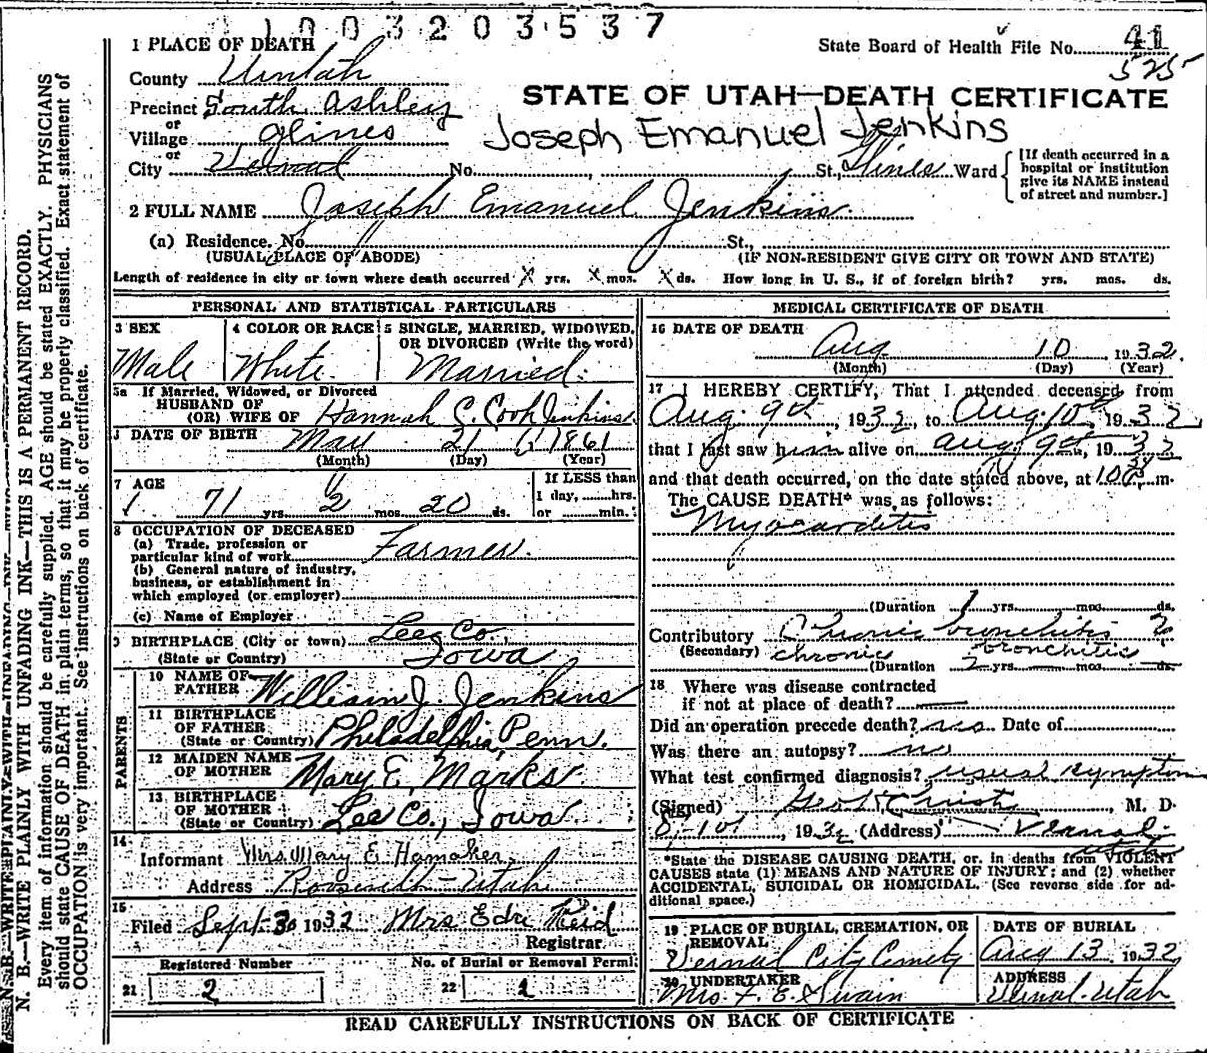 1003203537
State Board of Health File No. 41
525
1 PLACE OF DEATH
County Uintah
STATE OF UTAH—DEATH CERTIFICATE
Precinct South Ashley
or
Village Glines
Joseph Emanuel Jenkins
or
City Vernal No. , St., Glines Ward
[If death occurred in a hospital or institution give its NAME instead of street and number.]
2 FULL NAME Joseph Emanuel Jenkins
(a) Residence. No. St.,
(USUAL PLACE OF ABODE) (IF NON-RESIDENT GIVE CITY OR TOWN AND STATE)
Length of residence in city or town where death occurred X yrs. X mos. X ds. How long in U. S., if of foreign birth? yrs. mos. ds.
PERSONAL AND STATISTICAL PARTICULARS
3 SEX
Male
4 COLOR OR RACE
White
5 SINGLE, MARRIED, WIDOWED, OR DIVORCED (Write the word)
Married
5a If Married, Widowed, or Divorced
HUSBAND OF
(OR) WIFE OF Hannah C. Cook Jenkins
DATE OF BIRTH May 21 1861
(Month) (Day) (Year)
7 AGE
71 yrs. 2 mos. 20 ds.
If LESS than
1 day, hrs.
or min.
8 OCCUPATION OF DECEASED
(a) Trade, profession or
particular kind of work Farmer.
(b) General nature of industry,
business, or establishment in
which employed (or employer)
(c) Name of Employer
9 BIRTHPLACE (City or town) Lee Co.,
(State or Country) Iowa
PARENTS
10 NAME OF
FATHER William J. Jenkins
11 BIRTHPLACE
OF FATHER
(State or Country) Philadelphia, Penn.
12 MAIDEN NAME
OF MOTHER Mary E. Marks
13 BIRTHPLACE
OF MOTHER
(State or Country) Lee Co., Iowa
14
Informant Mrs. Mary E. Hamaker,
Address Roosevelt-Utah
15
Filed Sept 30 1932 Mrs Edw Reid
Registrar
Registered Number No. of Burial or Removal Permit
21 2 22 1
MEDICAL CERTIFICATE OF DEATH
16 DATE OF DEATH
Aug 10, 1932.
(Month) (Day) (Year)
17 I HEREBY CERTIFY, That I attended deceased from
Aug. 9th, 1932, to Aug. 10th 1932
that I last saw him alive on Aug 9th, 1932
and that death occurred, on the date stated above, at m.
The CAUSE DEATH* was as follows:
Myocarditis
(Duration 1 yrs. mos. ds.
Contributory Chronic bronchitis
(Secondary) chronic bronchitis
(Duration 2 yrs. mos. ds.
18 Where was disease contracted
if not at place of death?
Did an operation precede death? no Date of
Was there an autopsy? no
What test confirmed diagnosis? usual symptom
(Signed) , M. D.
8-10, 1932 (Address) Vernal, Utah
*State the DISEASE CAUSING DEATH, or, in deaths from VIOLENT
CAUSES state (1) MEANS AND NATURE OF INJURY; and (2) whether
ACCIDENTAL, SUICIDAL OR HOMICIDAL. (See reverse side for additional space.)
19 PLACE OF BURIAL, CREMATION, OR
REMOVAL
Vernal City Cemety
DATE OF BURIAL
Aug 13, 1932
20 UNDERTAKER
Mrs. F. E. Swain
ADDRESS
Vernal-Utah
READ CAREFULLY INSTRUCTIONS ON BACK OF CERTIFICATE
N. B.—WRITE PLAINLY WITH UNFADING INK—THIS IS A PERMANENT RECORD.
Every item of information should be carefully supplied. AGE should be stated EXACTLY. PHYSICIANS
should state CAUSE OF DEATH in plain terms, so that it may be properly classified. Exact statement of
OCCUPATION is very important. See instructions on back of certificate.